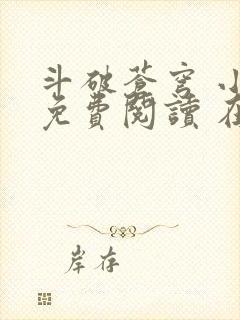 斗破苍穹 小
免費閱讀 在
岸存